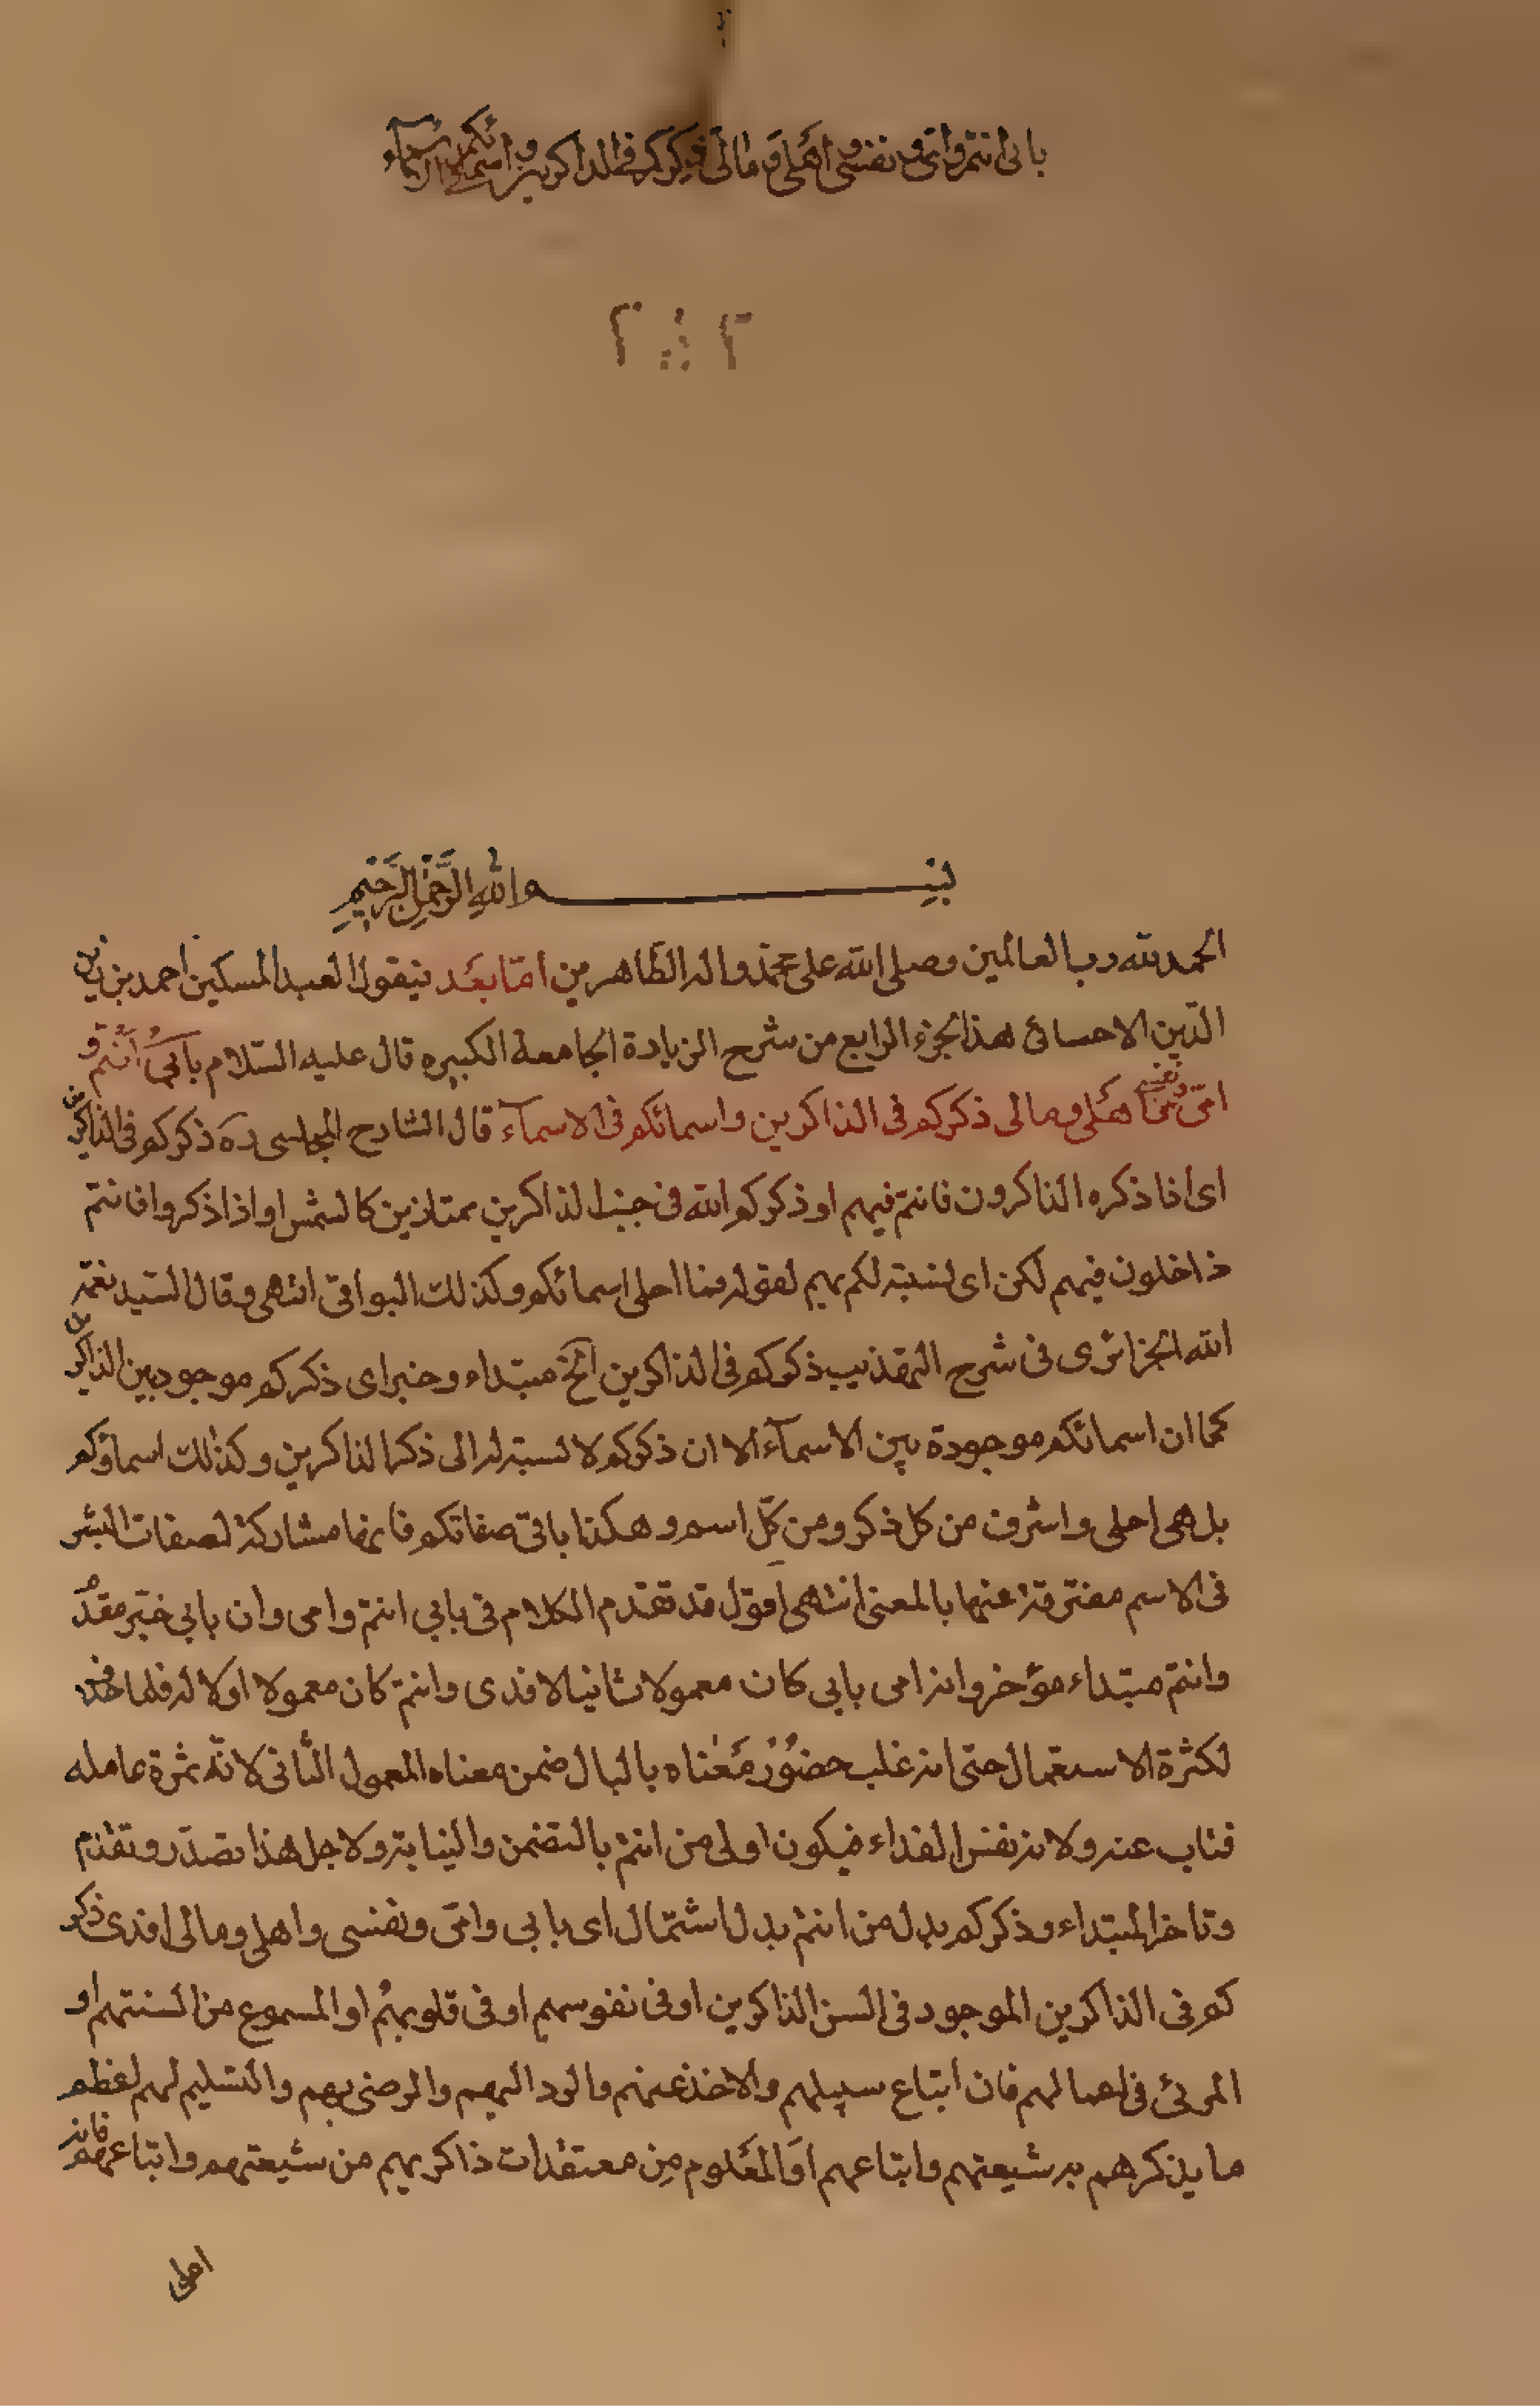 بابي انتم وامي ونفسي واهلي ومالي ذكركم في الذاكرين واسمائكم في الاسماء
بسم الله الرحمن الرحيم
الحمد لله رب العالمين وصلى الله على محمد واله الطاهرين اما بعد فيقول العبد المسكين احمد بن زين
الدين الاحسائى هذا الجزء الرابع من شرح الزيادة الجامعة الكبيره قال عليه السلام بابى انتم و
امى ونفسى واهلى ومالى ذكركم فى الذاكرين واسمائكم فى الاسمآء قال الشارح المجلسى ره ذكركم فى الذاكرين
اى اذا ذكره الذاكرون فانتم فيهم او ذكركم الله فى جنب الذاكرين ممتازين كالشمس او اذا ذكروا فانتم
داخلون فيهم لكن اى لنسبة لكم بهم لقوله فما احلى اسمائكم وكذلك البواقى انتهى وقال السيد نعمة
الله الجزائرى فى شرح التهذيب ذكركم فى الذاكرين الخ مبتداء وخبر اى ذكركم موجود بين الذاكرين
كما ان اسمائكم موجودة بين الاسمآء الا ان ذكركم لا نسبة له الى ذكر الذاكرين وكذلك اسماؤكم
بل هى احلى واشرف من كل ذكر ومن كل اسم وهكذا باقى صفاتكم فانها مشاركة لصفات البشر
فى الاسم مفترقة عنها بالمعنى انتهى اقول قد تقدم الكلام فى بابي انتم وامى وان بابي خبر مقدم
وانتم مبتداء مؤخر وانه امى بابى كان معمولا ثانيا لافدى وانتم كان معمولا اولا له فلما حذف
لكثرة الاستعمال حتى انه غلب حضور معناه بالبال ضمن معناه المعمول الثانى لانه ثمرة عامله
فناب عنه ولانه نفس الفداء فيكون اولى من انتم بالتضمن والنيابة ولاجل هذا تصدر وتقدم
وتاخر المبتداء وذكركم بدل من انتم بدل اشتمال اى بابي وامى ونفسى واهلى ومالى افدى ذكر
كم فى الذاكرين الموجود فى السن الذاكرين او فى نفوسهم او فى قلوبهم او المسموع من السنتهم او
المرئى فى اعمالهم فان اتباع سبيلهم والاخذ عنهم والرد اليهم والرضى بهم والتسليم لهم لعظم
ما يذكرهم به شيعتهم واتباعهم او المعلوم من معتقدات ذاكريهم من شيعتهم واتباعهم فانه
احلى